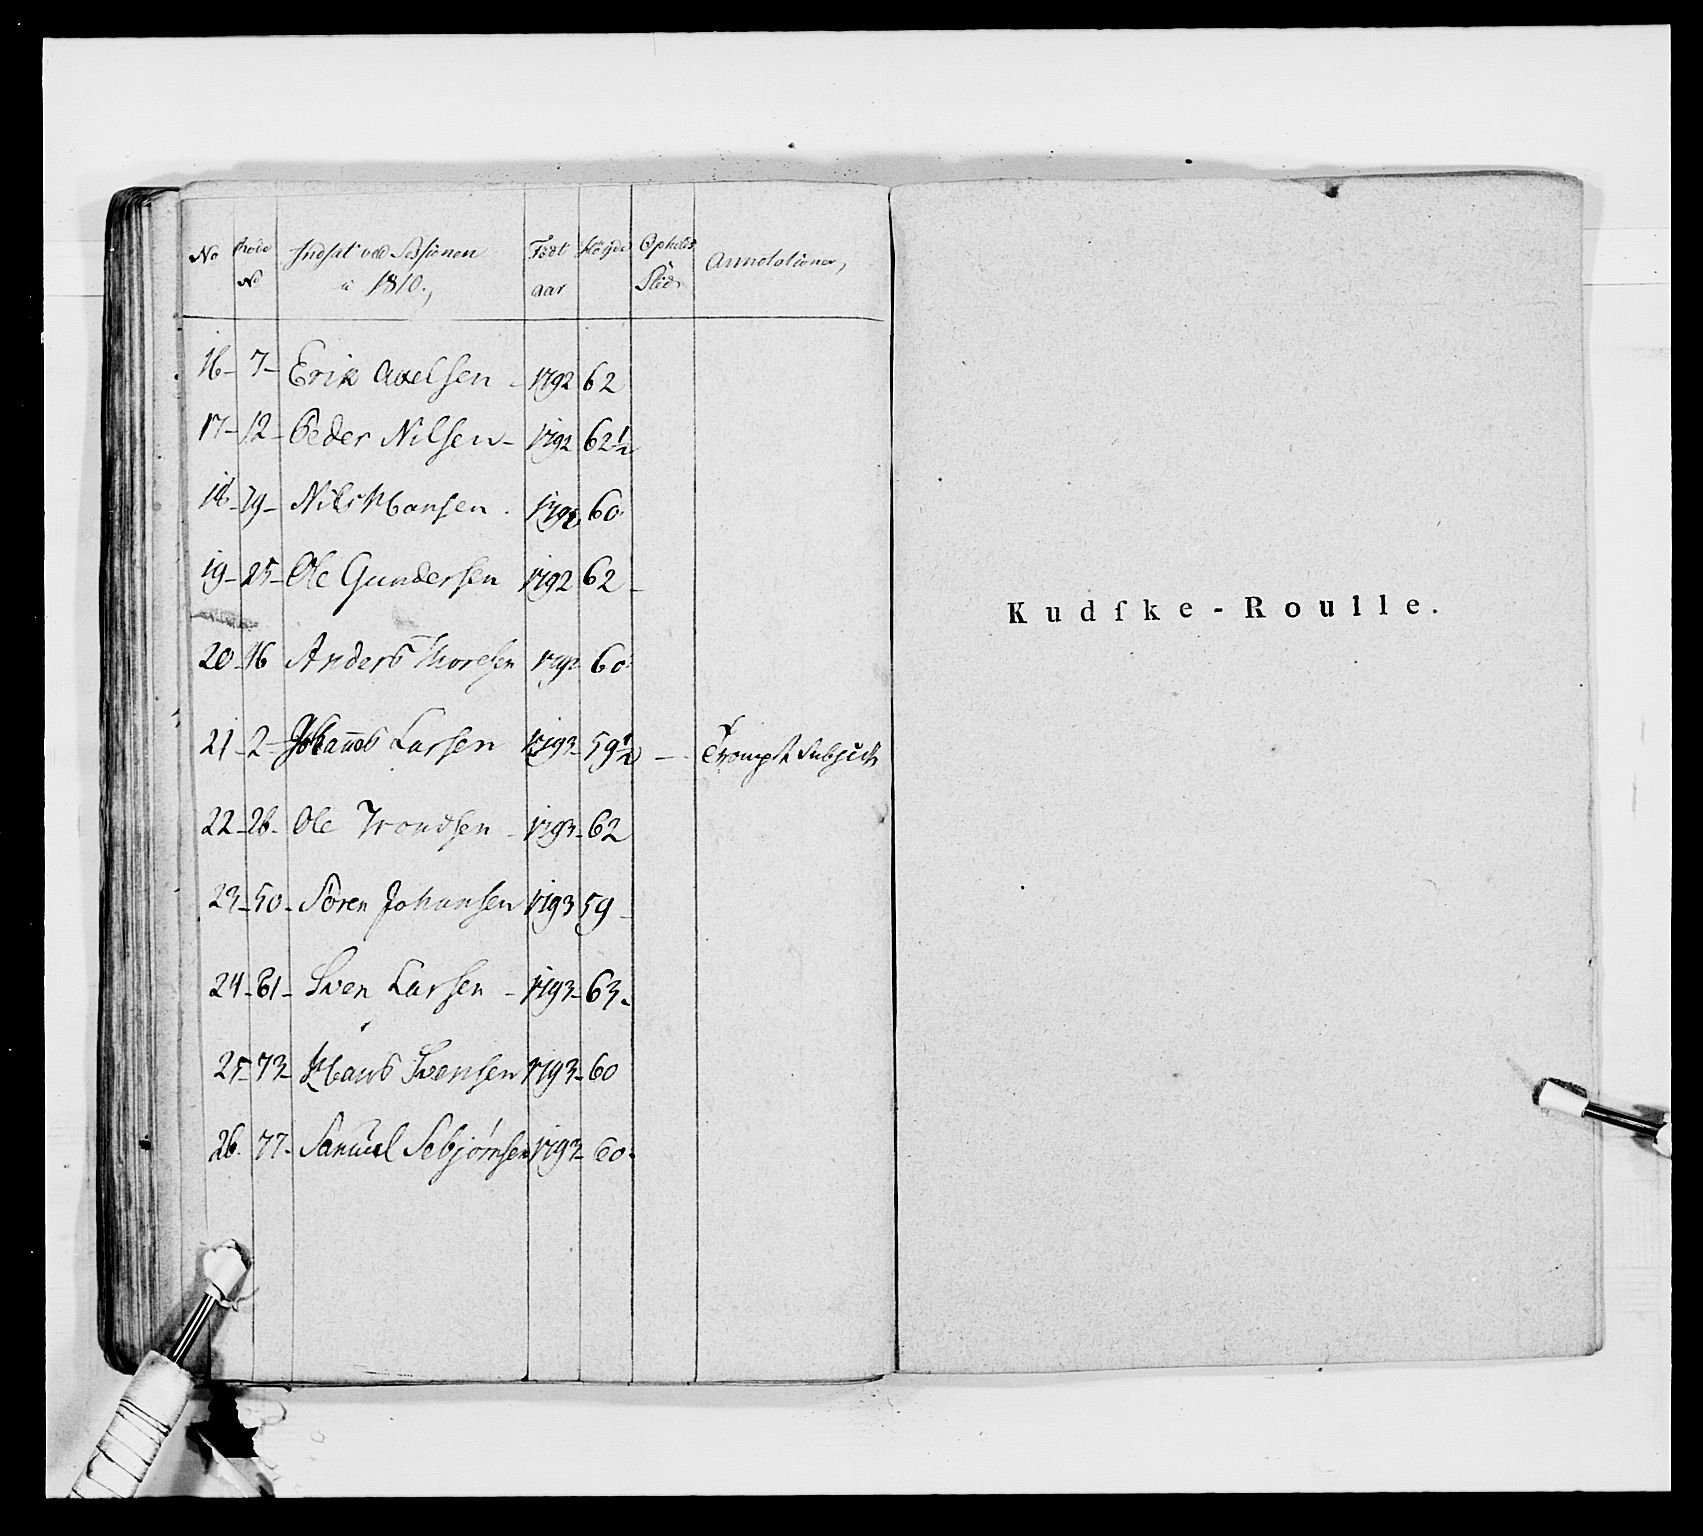 No Rode No Indsat ved Sessionen i 1810., Födt aar Høyde Opholds Sted Annotationer,
16 - 7 - Erik Axelsen - 1792 62
17 - 12 - Peder Nilsen - 1792 62 1/2
18 - 19 - Nils Hansen . 1792 60
19 - 25 - Ole Gundersen 1792 62 -
20 - 46 Anders Thoresen 1792 60
21 - 2 - Johannes Larsen 1793 - 59 1/2 - Trompt Subject
22 - 26 - Ole Trondsen - 1793 - 62
23 - 50 - Sören Johansen 1793 59 -
24 - 61 - Sven Larsen - 1793 - 63 -
25 - 73 - Hans Svensen 1793 - 60
26 . 77 - Samuel Sebjörnsen 1793 - 60 .
Kudſke-Roulle.